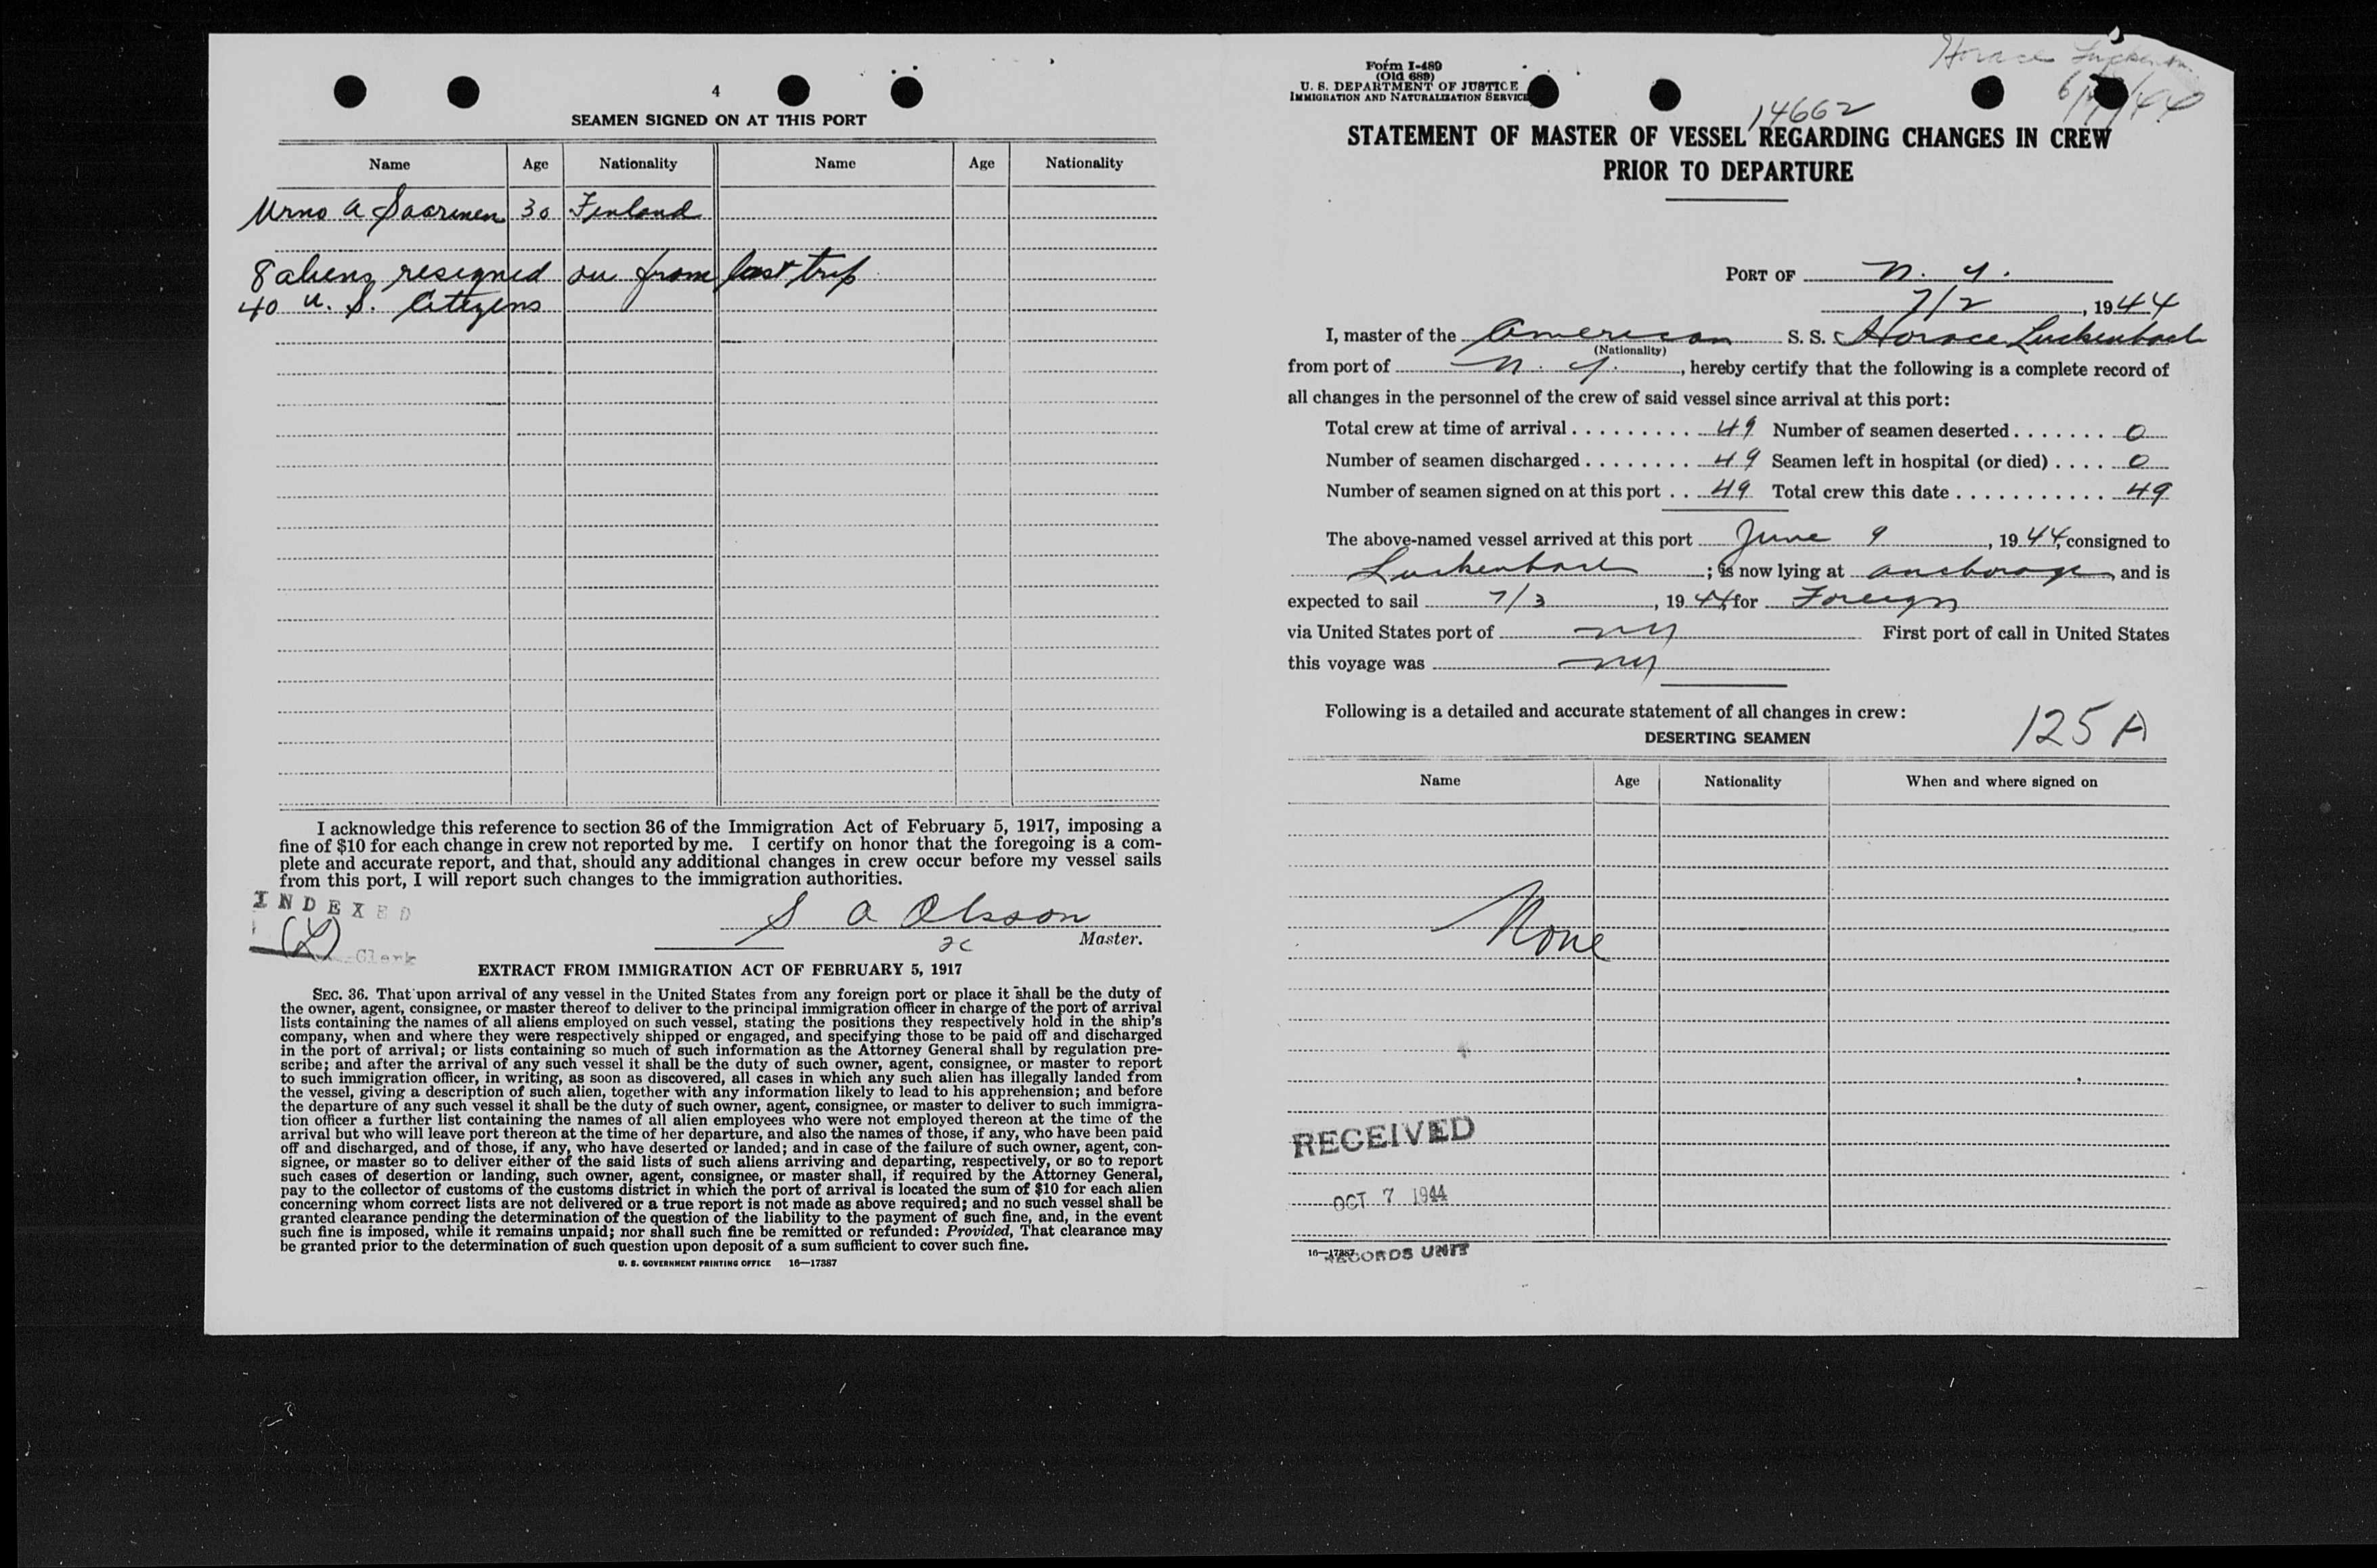 4
SEAMEN SIGNED ON AT THIS PORT
Name Age Nationality Name Age Nationality
Urno A Saarinen 30 Finland
8 aliens resigned on from last trip
40 U. S. Citizens
I acknowledge this reference to section 36 of the Immigration Act of February 5, 1917, imposing a
fine of $10 for each change in crew not reported by me. I certify on honor that the foregoing is a com-
plete and accurate report, and that, should any additional changes in crew occur before my vessel sails
from this port, I will report such changes to the immigration authorities.
INDEXED
S A Olsson
Master.
Clerk
EXTRACT FROM IMMIGRATION ACT OF FEBRUARY 5, 1917
SEC. 36. That upon arrival of any vessel in the United States from any foreign port or place it shall be the duty of
the owner, agent, consignee, or master thereof to deliver to the principal immigration officer in charge of the port of arrival
lists containing the names of all aliens employed on such vessel, stating the positions they respectively hold in the ship's
company, when and where they were respectively shipped or engaged, and specifying those to be paid off and discharged
in the port of arrival; or lists containing so much of such information as the Attorney General shall by regulation pre-
scribe; and after the arrival of any such vessel it shall be the duty of such owner, agent, consignee, or master to report
to such immigration officer, in writing, as soon as discovered, all cases in which any such alien has illegally landed from
the vessel, giving a description of such alien, together with any information likely to lead to his apprehension; and before
the departure of any such vessel it shall be the duty of such owner, agent, consignee, or master to deliver to such immigra-
tion officer a further list containing the names of all alien employees who were not employed thereon at the time of the
arrival but who will leave port thereon at the time of her departure, and also the names of those, if any, who have been paid
off and discharged, and of those, if any, who have deserted or landed; and in case of the failure of such owner, agent, con-
signee, or master so to deliver either of the said lists of such aliens arriving and departing, respectively, or so to report
such cases of desertion or landing, such owner, agent, consignee, or master shall, if required by the Attorney General,
pay to the collector of customs of the customs district in which the port of arrival is located the sum of $10 for each alien
concerning whom correct lists are not delivered or a true report is not made as above required; and no such vessel shall be
granted clearance pending the determination of the question of the liability to the payment of such fine, and, in the event
such fine is imposed, while it remains unpaid; nor shall such fine be remitted or refunded: Provided, That clearance may
be granted prior to the determination of such question upon deposit of a sum sufficient to cover such fine.
U. S. GOVERNMENT PRINTING OFFICE 16—17387
Horace
Form I-489
(Old 689)
U. S. DEPARTMENT OF JUSTICE
IMMIGRATION AND NATURALIZATION SERVICE
14662
STATEMENT OF MASTER OF VESSEL REGARDING CHANGES IN CREW
PRIOR TO DEPARTURE
PORT OF N. Y.
7/2, 1944
I, master of the American S. S. Horace Luckenbach
(Nationality)
from port of N. Y., hereby certify that the following is a complete record of
all changes in the personnel of the crew of said vessel since arrival at this port:
Total crew at time of arrival . . . . . . . . . . 49 Number of seamen deserted . . . . . . . 0
Number of seamen discharged . . . . . . . . 49 Seamen left in hospital (or died) . . . . 0
Number of seamen signed on at this port . . 49 Total crew this date . . . . . . . . . . . . 49
The above-named vessel arrived at this port June 9, 1944, consigned to
Luckenbach; is now lying at anchorage, and is
expected to sail 7/3, 1944, for Foreign
via United States port of NY First port of call in United States
this voyage was NY
Following is a detailed and accurate statement of all changes in crew:
125 A
DESERTING SEAMEN
Name Age Nationality When and where signed on
None
RECEIVED
OCT 7 1944
16—17387
RECORDS UNIT